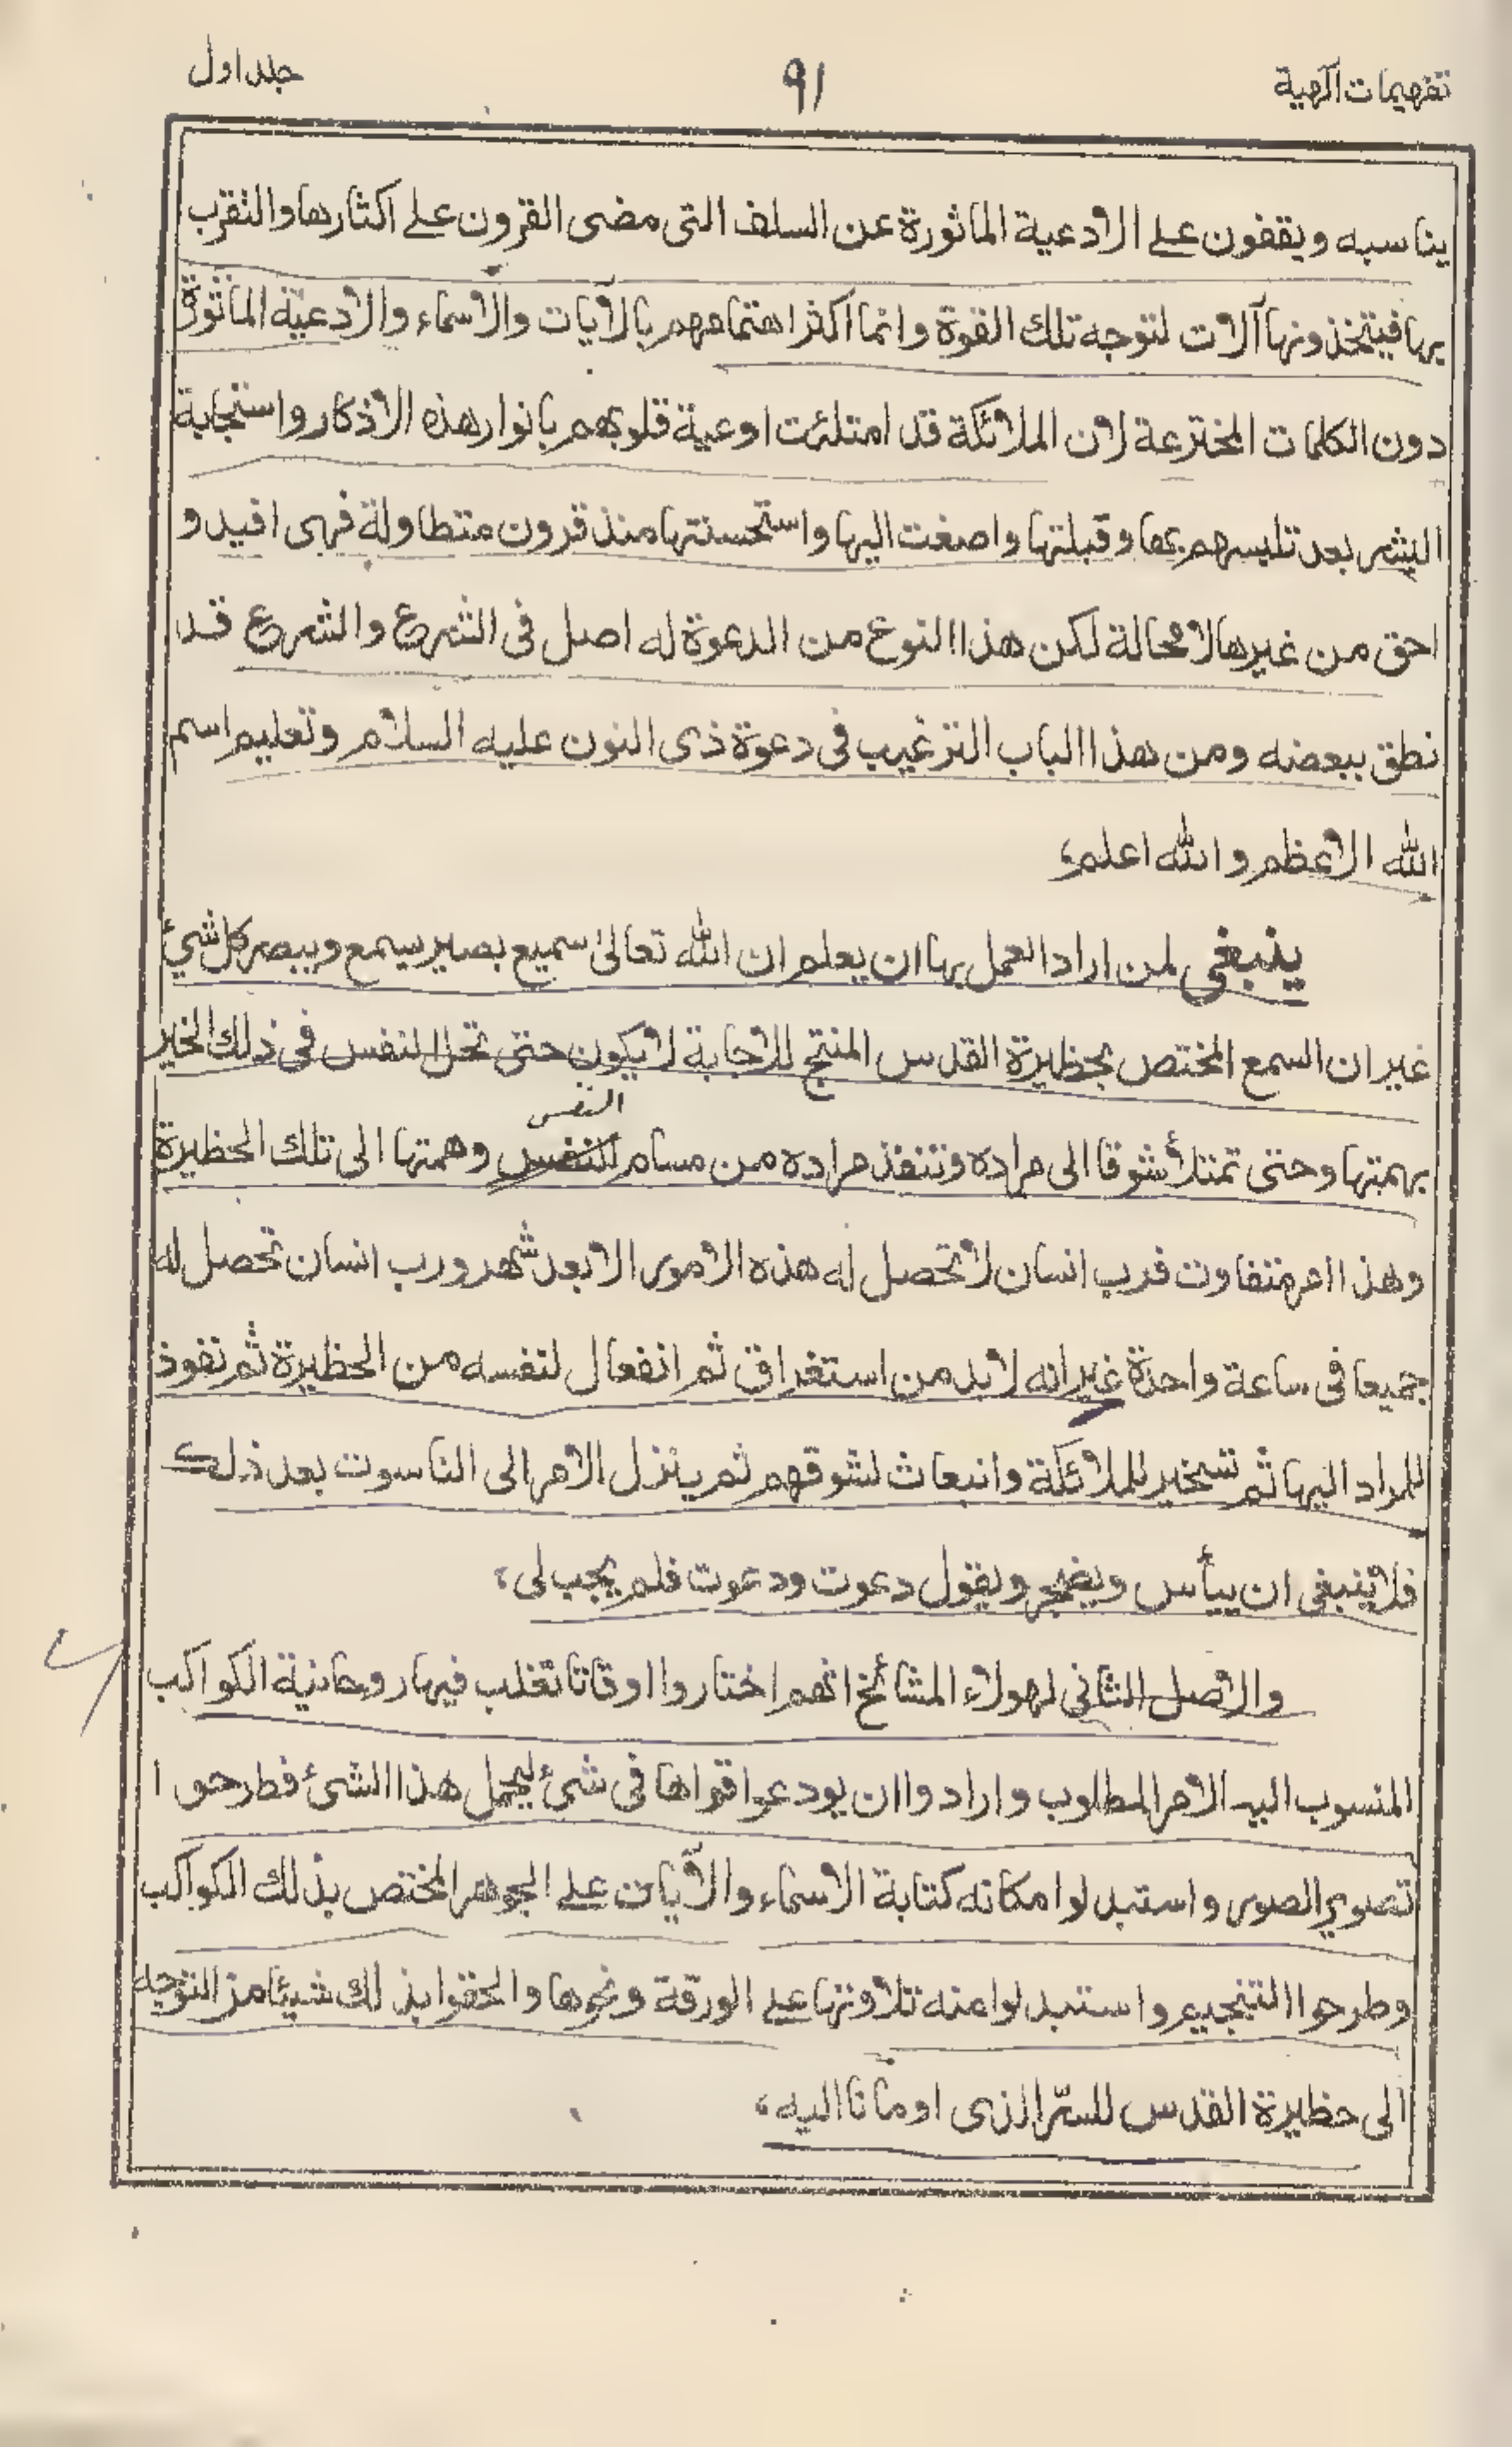 تفهيمات آلهية ٩١ جلد اول
يناسبه ويقفون على الادعية الماثورة عن السلف التى مضى القرون على اكثارها والتقرب
بها فيتخذونها آلات لتوجه تلك القوة وانما اكثر اهتمامهم بالآيات والاسماء والادعية الماثورة
دون الكلمات المخترعة لان الملائكة قد امتلئت اوعية قلوبهم بانوار هذه الاذكار واستجابة
البشر بعد تلبسهم بها وقبلتها واصغت اليها واستحسنتها منذ قرون متطاولة فهى افيد و
احق من غيرها لا محالة لكن هذا النوع من الدعوة له اصل فى الشرع والشرع قد
نطق ببعضه ومن هذا الباب الترغيب فى دعوة ذى النون عليه السلام وتعليم اسم
الله الاعظم والله اعلم،
ينبغى لمن اراد العمل بها ان يعلم ان الله تعالى سميع بصير يسمع ويبصر كل شئ
غير ان السمع المختص بحظيرة القدس المنتج للاجابة لا يكون حتى تحل النفس فى ذلك الخير
النفس
بهمتها وحتى تمتلأ شوقا الى مراده وتنفذ مراده من مسام النفس وهمتها الى تلك الحظيرة
وهذا امر متفاوت فرب انسان لا تحصل له هذه الامور الا بعد شهر ورب انسان تحصل له
جميعا فى ساعة واحدة غير انه لا بد من استغراق ثم انفعال لنفسه من الحظيرة ثم نفوذ
للمراد اليها ثم تسخير للملائكة وانبعاث لشوقهم ثم ينزل الامر الى الناسوت بعد ذلك
فلا ينبغى ان ييأس ويضجر ويقول دعوت ودعوت فلم يجب لى،
والاصل الثانى لهولاء المشائخ انهم اختاروا اوقاتا تغلب فيها روحانية الكواكب
المنسوب اليه الامر المطلوب وارادوا ان يودعوا قواها فى شئ ليحمل هذا الشئ فطرحوا
تصوير الصور واستبدلوا مكانه كتابة الاسماء والآيات على الجوهر المختص بذلك الكواكب
وطرحوا التنجيم واستبدلوا منه تلاوتها على الورقة ونحوها والحقوا بذلك شيئا من التوجه
الى حظيرة القدس للسرّ الذى اومأنا اليه،